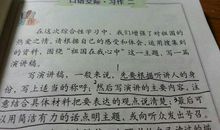 口语交际·习作二
在这次综合性学习中，我们增强了对祖国的
热爱之情。请根据自己的感受和体会，运用搜集的
资料，围绕“祖国在我心中”这一主题，写一篇
演讲稿。
写演讲稿，一般来说，先要根据听讲人的身
份，写上适当的称呼；然后写演讲的主要内容，注
意结合具体材料把要表达的观点说清楚；最后可
以用简洁有力的话点明主题，或向听众发出号